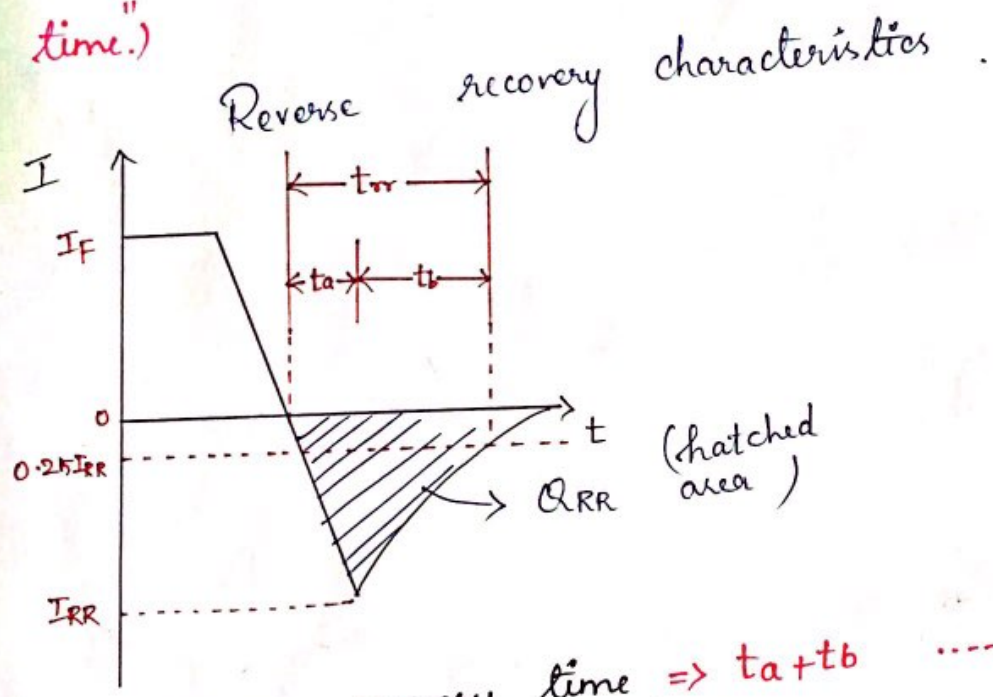 time.")
Reverse recovery characteristics .
I
trr
IF
ta
tb
0
t
0.25IRR
QRR (hatched
area)
IRR
time => ta+tb ....